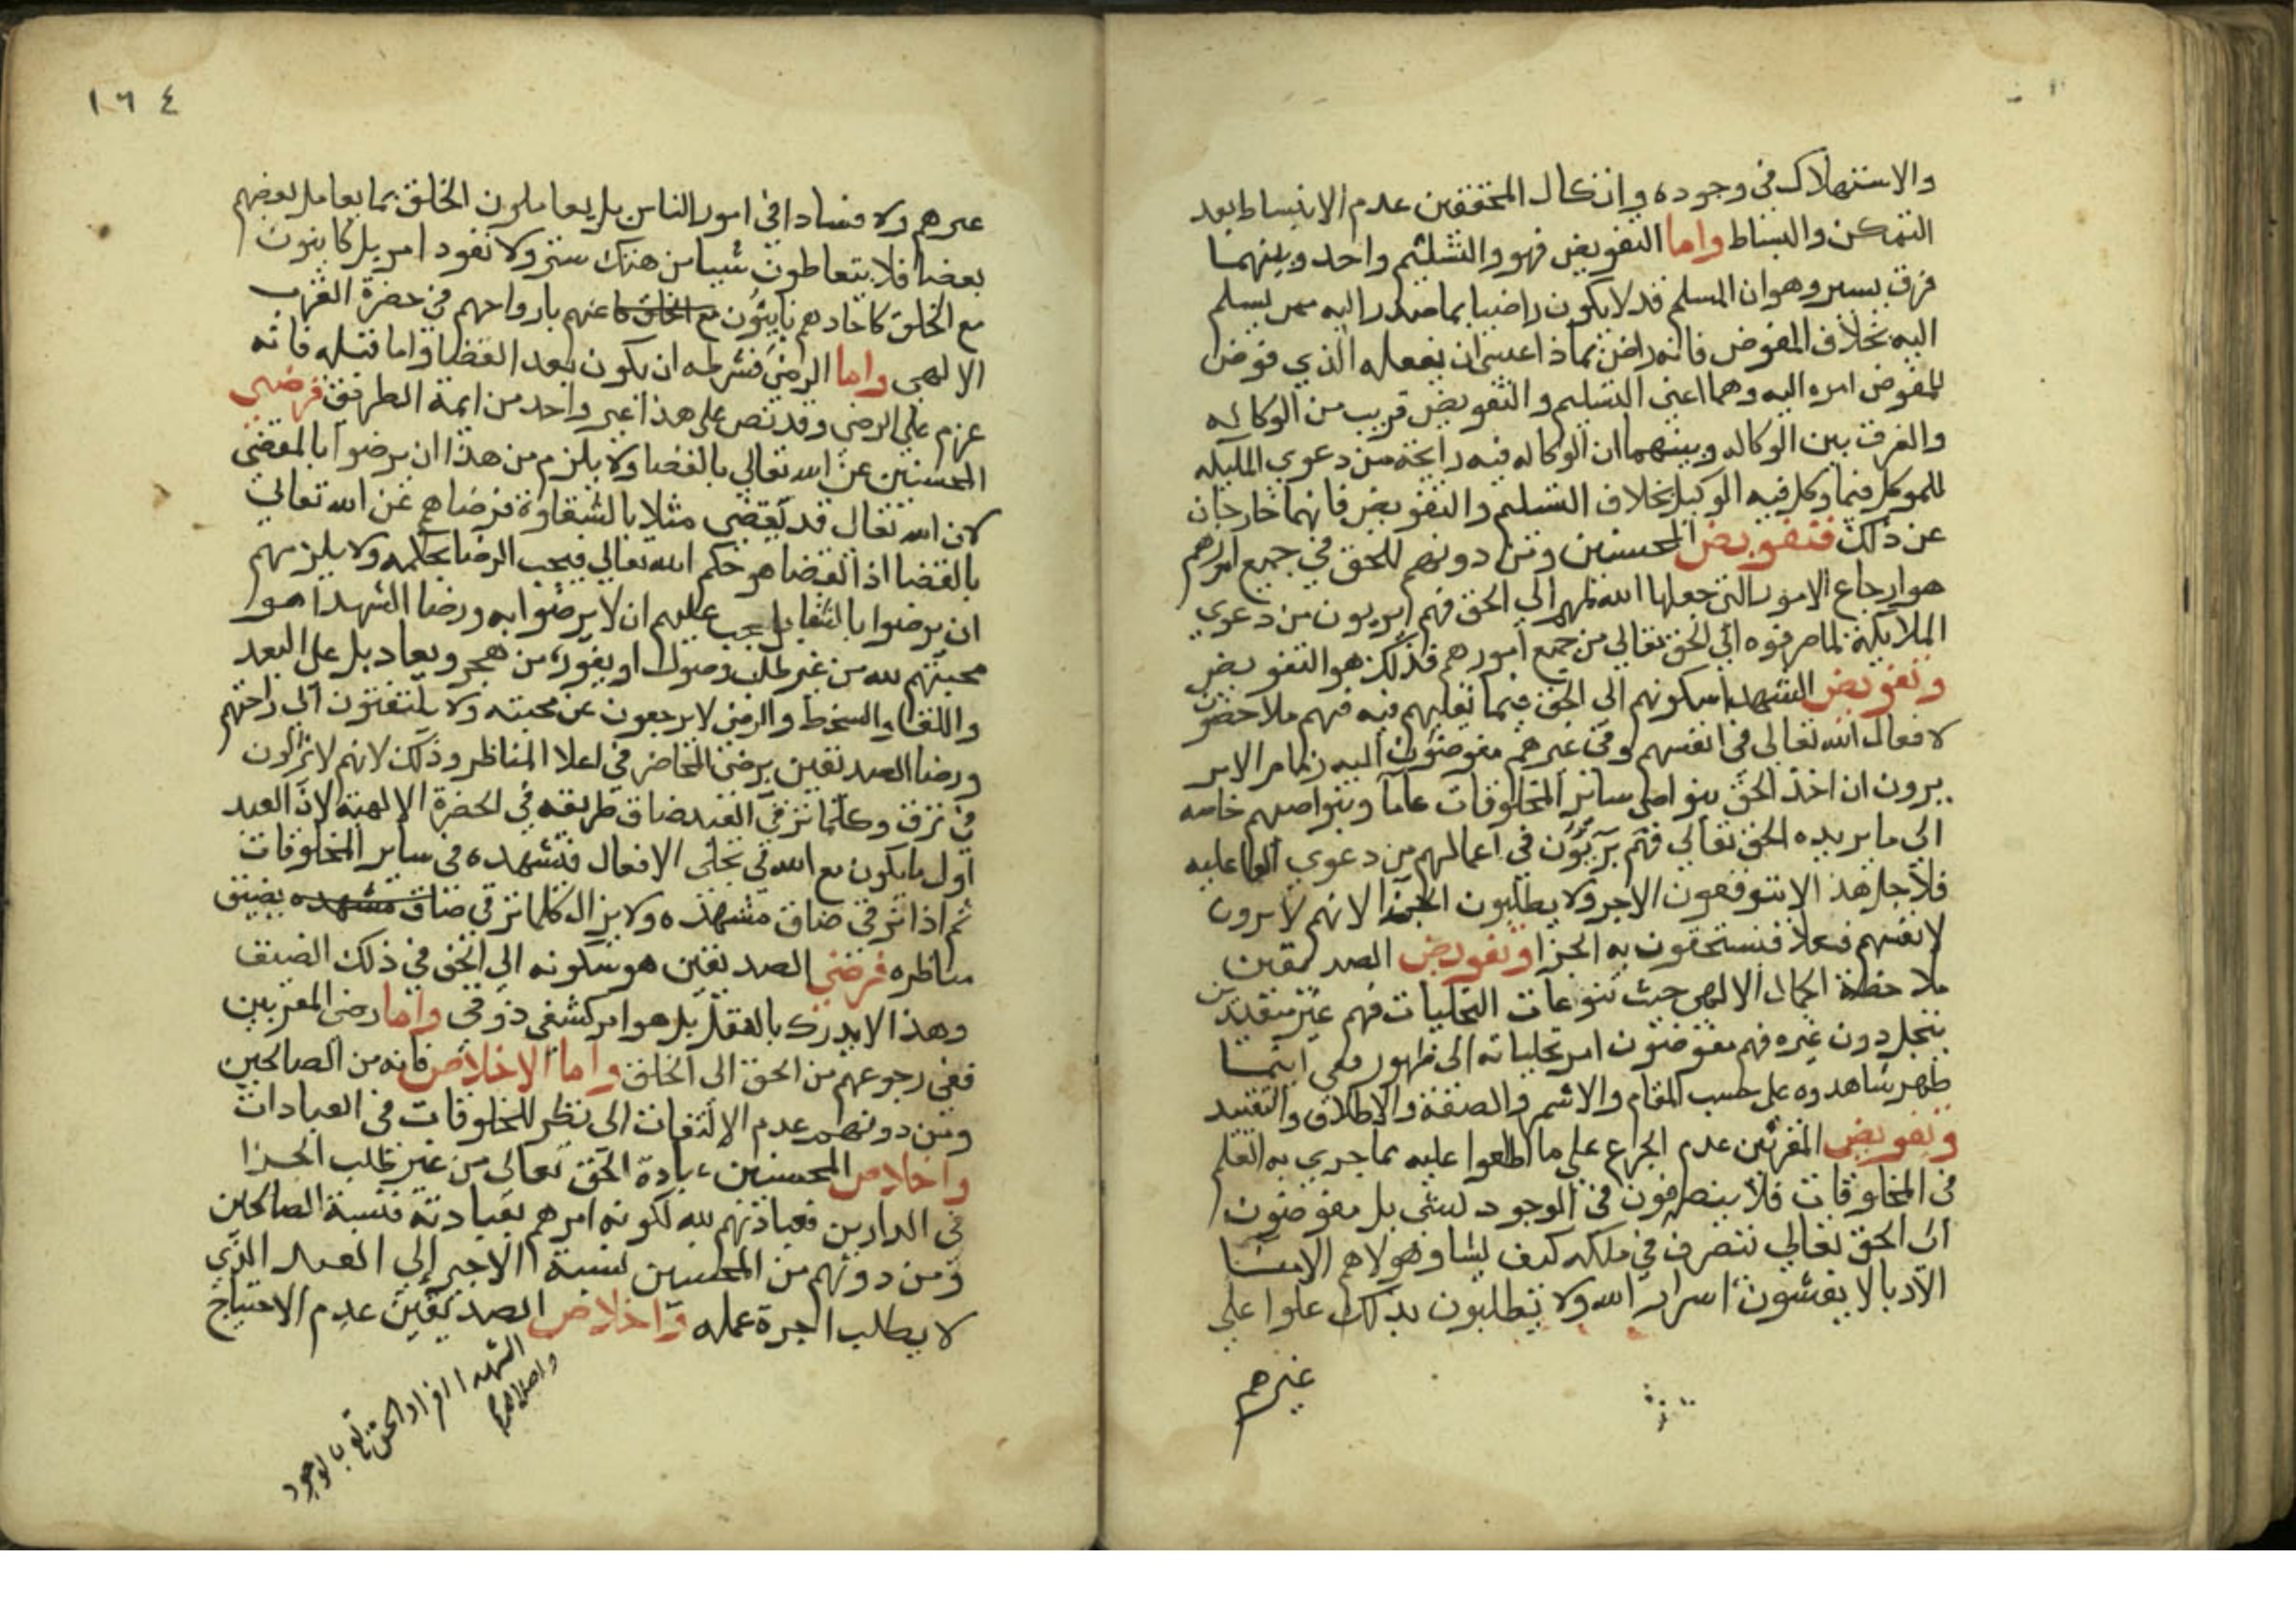 والاستهلاك في وجوده وان كال المحققين عدم الانبساط بعد
التمكن والبساط واما التفويض فهو والتسليم واحد وبينهما
فرق يسير وهو ان المسلم قد لا يكون راضيا بما صدر اليه ممن يسلم
اليه بخلاف المفوض فانه راض بماذا عسى ان يفعله الذي فوض
المفوض امره اليه وهما اعني التسليم والتفويض قريب من الوكاله
والفرق بين الوكاله وبينهما ان الوكاله فيه رايحة من دعوي الملكيه
للموكل فيما وكل فيه الوكيل بخلاف التسليم والتفويض فانهما خارجان
عن ذلك فتفويض المحسنين ومن دونهم للحق في جميع امورهم
هو ارجاع الامور التي جعلها الله لهم الي الحق فهم بريون من دعوي
الملايكية لما صرفوه الي الحق تعالي من جميع امورهم فذلك هو التفويض
وتفويض الشهدا سكونهم الي الحق فيما تقلبهم فيه فهم ملاحضون
لافعال الله تعالي في انفسهم وفي غيرهم مفوضون اليه زمام الامر
يرون ان اخذ الحق بنواصي ساير المخلوقات عاما وبنواصيهم خاصه
الي ما يريده الحق تعالي فهم بريون في اعمالهم من دعوي الفاعليه
فلاجل هذا لا يتوقعون الاجر ولا يطلبون الجزا لانهم لا يرون
لانفسهم فعلا فيستحقون به الجزا وتفويض الصديقين
ملاحظة الجمال الالهي حيث تنوعات التجليات فهم غير متقيدين
بتجل دون غيره فهم مفوضون امر تجلياته الي ظهور فهي اينما
ظهر شاهدوه علي حسب المقام والاسم والصفة والاطلاق والتقييد
وتفويض المقربين عدم الجزع علي ما اطلعوا عليه بما جري به القلم
في المخلوقات فلا يتصرفون في الوجود لشي بل مفوضون
الي الحق تعالي يتصرف في ملكه كيف يشا وهولاهم الامنا
الادبا لا يفشون اسرار الله ولا يطلبون بذلك علوا علي
غيرهم
١٦٤
غيرهم ولا فسادا في امور الناس بل يعاملون الخلق بما يعامل بعضهم
بعضا فلا يتعاطون شيا من هتك ستر ولا نفود امر بل كاينون
مع الخلق كاحادهم باينون مع الخلق كا عنهم بارواحهم في حضرة القرب
الالهي واما الرضي فشرطه ان يكون بعد القضا واما قبله فانه
عزم علي الرضي وقد نص علي هذا غير واحد من ايمة الطريق فرضي
المحسنين عن الله تعالي بالقضا ولا يلزم من هذا ان يرضوا بالمقضي
لان الله تعالي قد يقضي مثلا بالشقاوة فرضاهم عن الله تعالي
بالقضا اذ القضا هو حكم الله تعالي فيجب الرضا بحكمه ولا يلزمهم
ان يرضوا بالشقا بل يجب عليهم ان لا يرضوا به ورضا الشهدا هو
محبتهم لله من غير طلب وصول او يفور من هجر وبعاد بل علي البعد
واللقا والسخط والرضي لا يرجعون عن محبته ولا يلتفتون الي راحتهم
ورضا الصديقين برضي المحاضر في اعلا المناظر وذلك لانهم لا يزالون
في ترق وكلما ترقي العبد ضاق طريقه في الحضرة الالهية لان العبد
اول ما يكون مع الله في تجلي الافعال فيشهده في ساير المخلوقات
ثم اذا ترقي ضاق مشهده ولا يزال كلما ترقي ضاق مشهده يضيق
مناظره فرضي الصديقين هو سكونه الي الحق في ذلك الضيق
وهذا لا يدرك بالعقل بل هو امر كشفي ذوقي واما رضي المقربين
ففي رجوعهم من الحق الي الخلق واما الاخلاص فانه من الصالحين
ومن دونهم عدم الالتفات الي نظر المخلوقات في العبادات
واخلاص المحسنين عبادة الحق تعالي من غير طلب الجزا
في الدارين فعبادتهم لله لكونه امرهم بعبادته فنسبة الصالحين
ومن دونهم من المحسنين نسبة الاجير الي العبد الذي
لا يطلب اجرة عمله واخلاص الصديقين عدم الاحتياج
الشهدا افراد الحق بالوجود
واخلاص